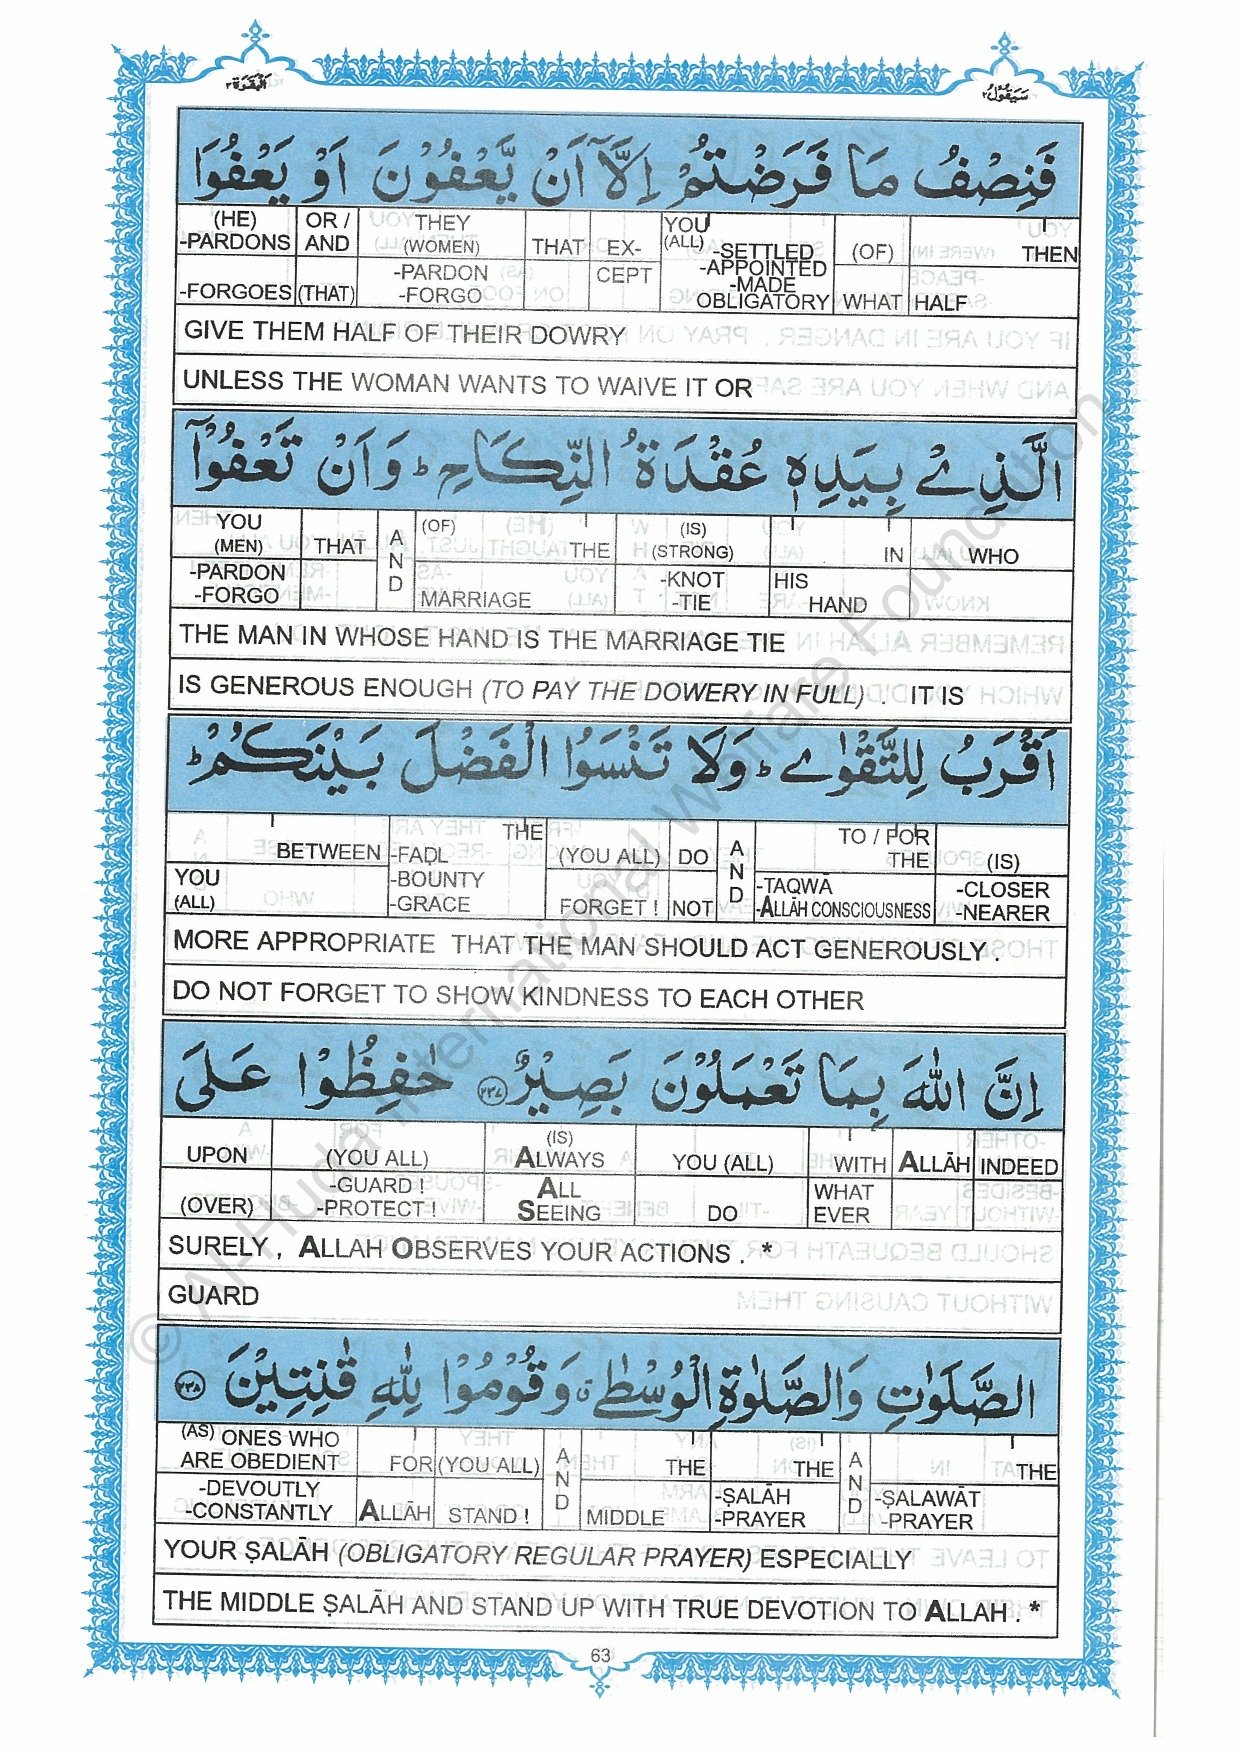 البقرة ٢
سيقول ٢
فَنِصْفُ مَا فَرَضْتُمْ اِلَّاۤ اَنْ يَّعْفُوْنَ اَوْ يَعْفُوَا
(HE) OR / THEY YOU
-PARDONS AND (WOMEN) THAT EX- (ALL) -SETTLED (OF) THEN
-FORGOES (THAT) -PARDON CEPT -APPOINTED
-FORGO -MADE
OBLIGATORY WHAT HALF
GIVE THEM HALF OF THEIR DOWRY
UNLESS THE WOMAN WANTS TO WAIVE IT OR
الَّذِيْ بِيَدِهٖ عُقْدَةُ النِّكَاحِ ؕ وَاَنْ تَعْفُوْۤا
YOU THAT AND (OF) THE (IS) IN WHO
(MEN) (STRONG)
-PARDON MARRIAGE -KNOT HIS
-FORGO -TIE HAND
THE MAN IN WHOSE HAND IS THE MARRIAGE TIE
IS GENEROUS ENOUGH (TO PAY THE DOWERY IN FULL) . IT IS
اَقْرَبُ لِلتَّقْوٰى ؕ وَلَا تَنْسَوُا الْفَضْلَ بَيْنَكُمْ ؕ
THE TO / FOR
BETWEEN -FAḌL (YOU ALL) DO AND THE (IS)
YOU -BOUNTY -TAQWĀ -CLOSER
(ALL) -GRACE FORGET ! NOT -ALLĀH CONSCIOUSNESS -NEARER
MORE APPROPRIATE THAT THE MAN SHOULD ACT GENEROUSLY .
DO NOT FORGET TO SHOW KINDNESS TO EACH OTHER
اِنَّ اللّٰهَ بِمَا تَعْمَلُوْنَ بَصِيْرٌ ٢٣٧ حٰفِظُوْا عَلَى
UPON (YOU ALL) (IS) ALWAYS YOU (ALL) WITH ALLĀH INDEED
-GUARD ! ALL WHAT
(OVER) -PROTECT ! SEEING DO EVER
SURELY , ALLAH OBSERVES YOUR ACTIONS . *
GUARD
الصَّلَوٰتِ وَالصَّلٰوةِ الْوُسْطٰى ۗ وَقُوْمُوْا لِلّٰهِ قٰنِتِيْنَ ٢٣٨
(AS) ONES WHO
ARE OBEDIENT FOR (YOU ALL) AND THE THE AND THE
-DEVOUTLY -ṢALĀH -ṢALAWĀT
-CONSTANTLY ALLĀH STAND ! MIDDLE -PRAYER -PRAYER
YOUR ṢALĀH (OBLIGATORY REGULAR PRAYER) ESPECIALLY
THE MIDDLE ṢALĀH AND STAND UP WITH TRUE DEVOTION TO ALLAH . *
63
© Al-Huda International Welfare Foundation